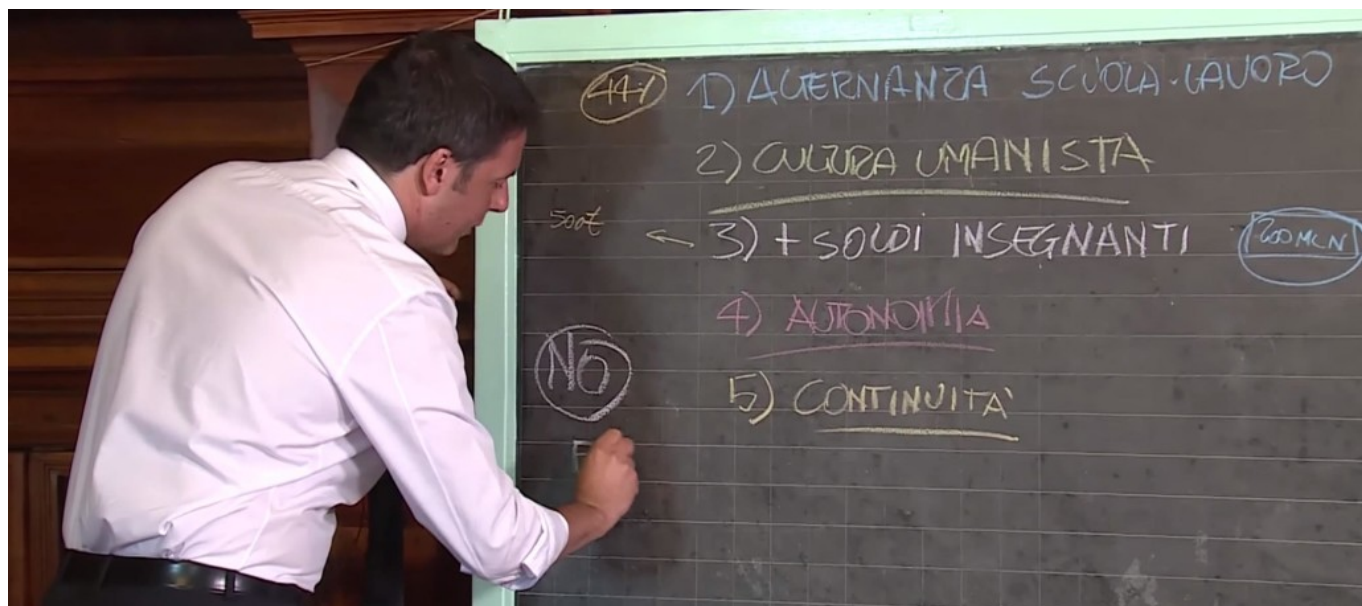 44% 1) ALTERNANZA SCUOLA-LAVORO
2) CULTURA UMANISTA
500€ ← 3) + SOLDI INSEGNANTI 200 MLN
4) AUTONOMIA
NO 5) CONTINUITA'
F